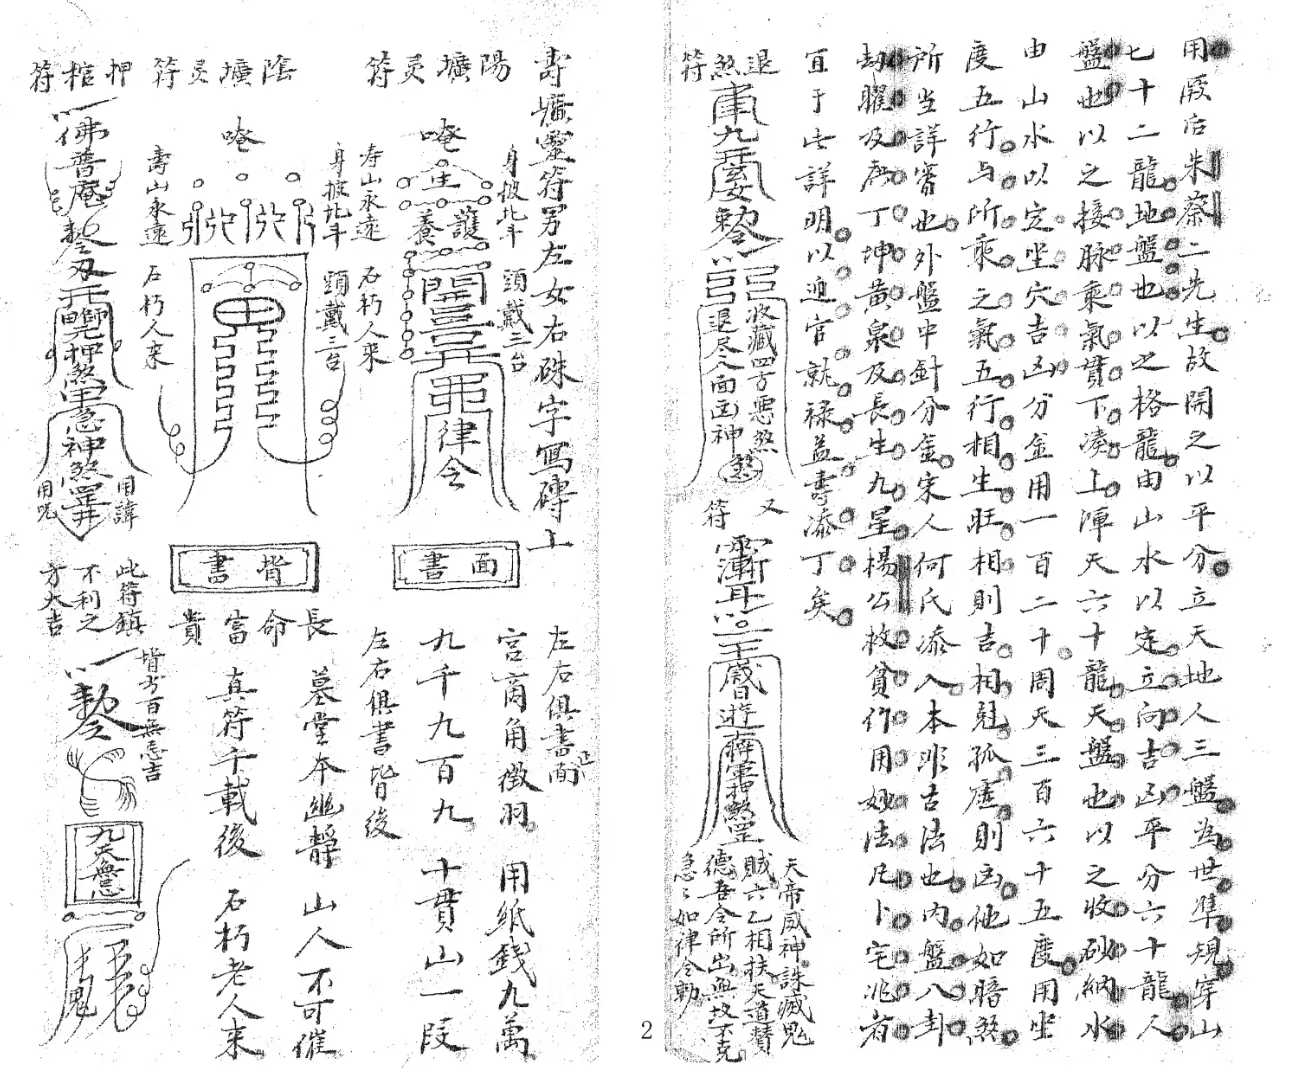 用厥后朱蔡二先生故開之以平分立天地人三盤為世準規穿山
七十二龍地盤也以之格龍由山水以定立向吉凶平分六十龍人
盤也以之接脉乘氣貫下凑上渾天六十龍天盤也以之收砂納水
由山水以定坐穴吉凶分金用一百二十周天三百六十五度用坐
度五行与所乘之氣五行相生旺相則吉相尅孤虛則凶他如暗煞
所当詳審也外盤中針分金宋人何氏添入本非古法也内盤八卦
劫曜及庚丁坤黃泉及長生九星楊公救貧作用妙法凡卜宅兆者
宜于此詳明以迎官就祿益壽添丁矣
退煞符
九天
勅令
收藏四方惡煞
退尽八面凶神
煞
又符
漸耳
歲日遊
軍押煞罡
天帝威神誅滅鬼
賊六乙相扶天道賛
德吾令所出無攻不克
急〻如律令勅
2
壽壙靈符男左女右硃字寫磚上
陽壙灵符
身披北斗 頭戴三台
唵
護
養
開
律令
寿山永遠 石朽人來
面書
陰壙灵符
身披北斗 頭戴三台
唵
壽山永遠 石朽人來
背書
押棺符
佛普庵
押煞
急神煞罡
用諱
用呪
此符鎮
不利之
方大吉
左右俱書正面
宮商角徵羽 用紙錢九萬
九千九百九 十貫山一段
左右俱書背後
長命富貴
墓堂本幽靜 山人不可催
真符千載後 石朽老人來
皆方百無忌吉
勅令
九天無忌
鬼